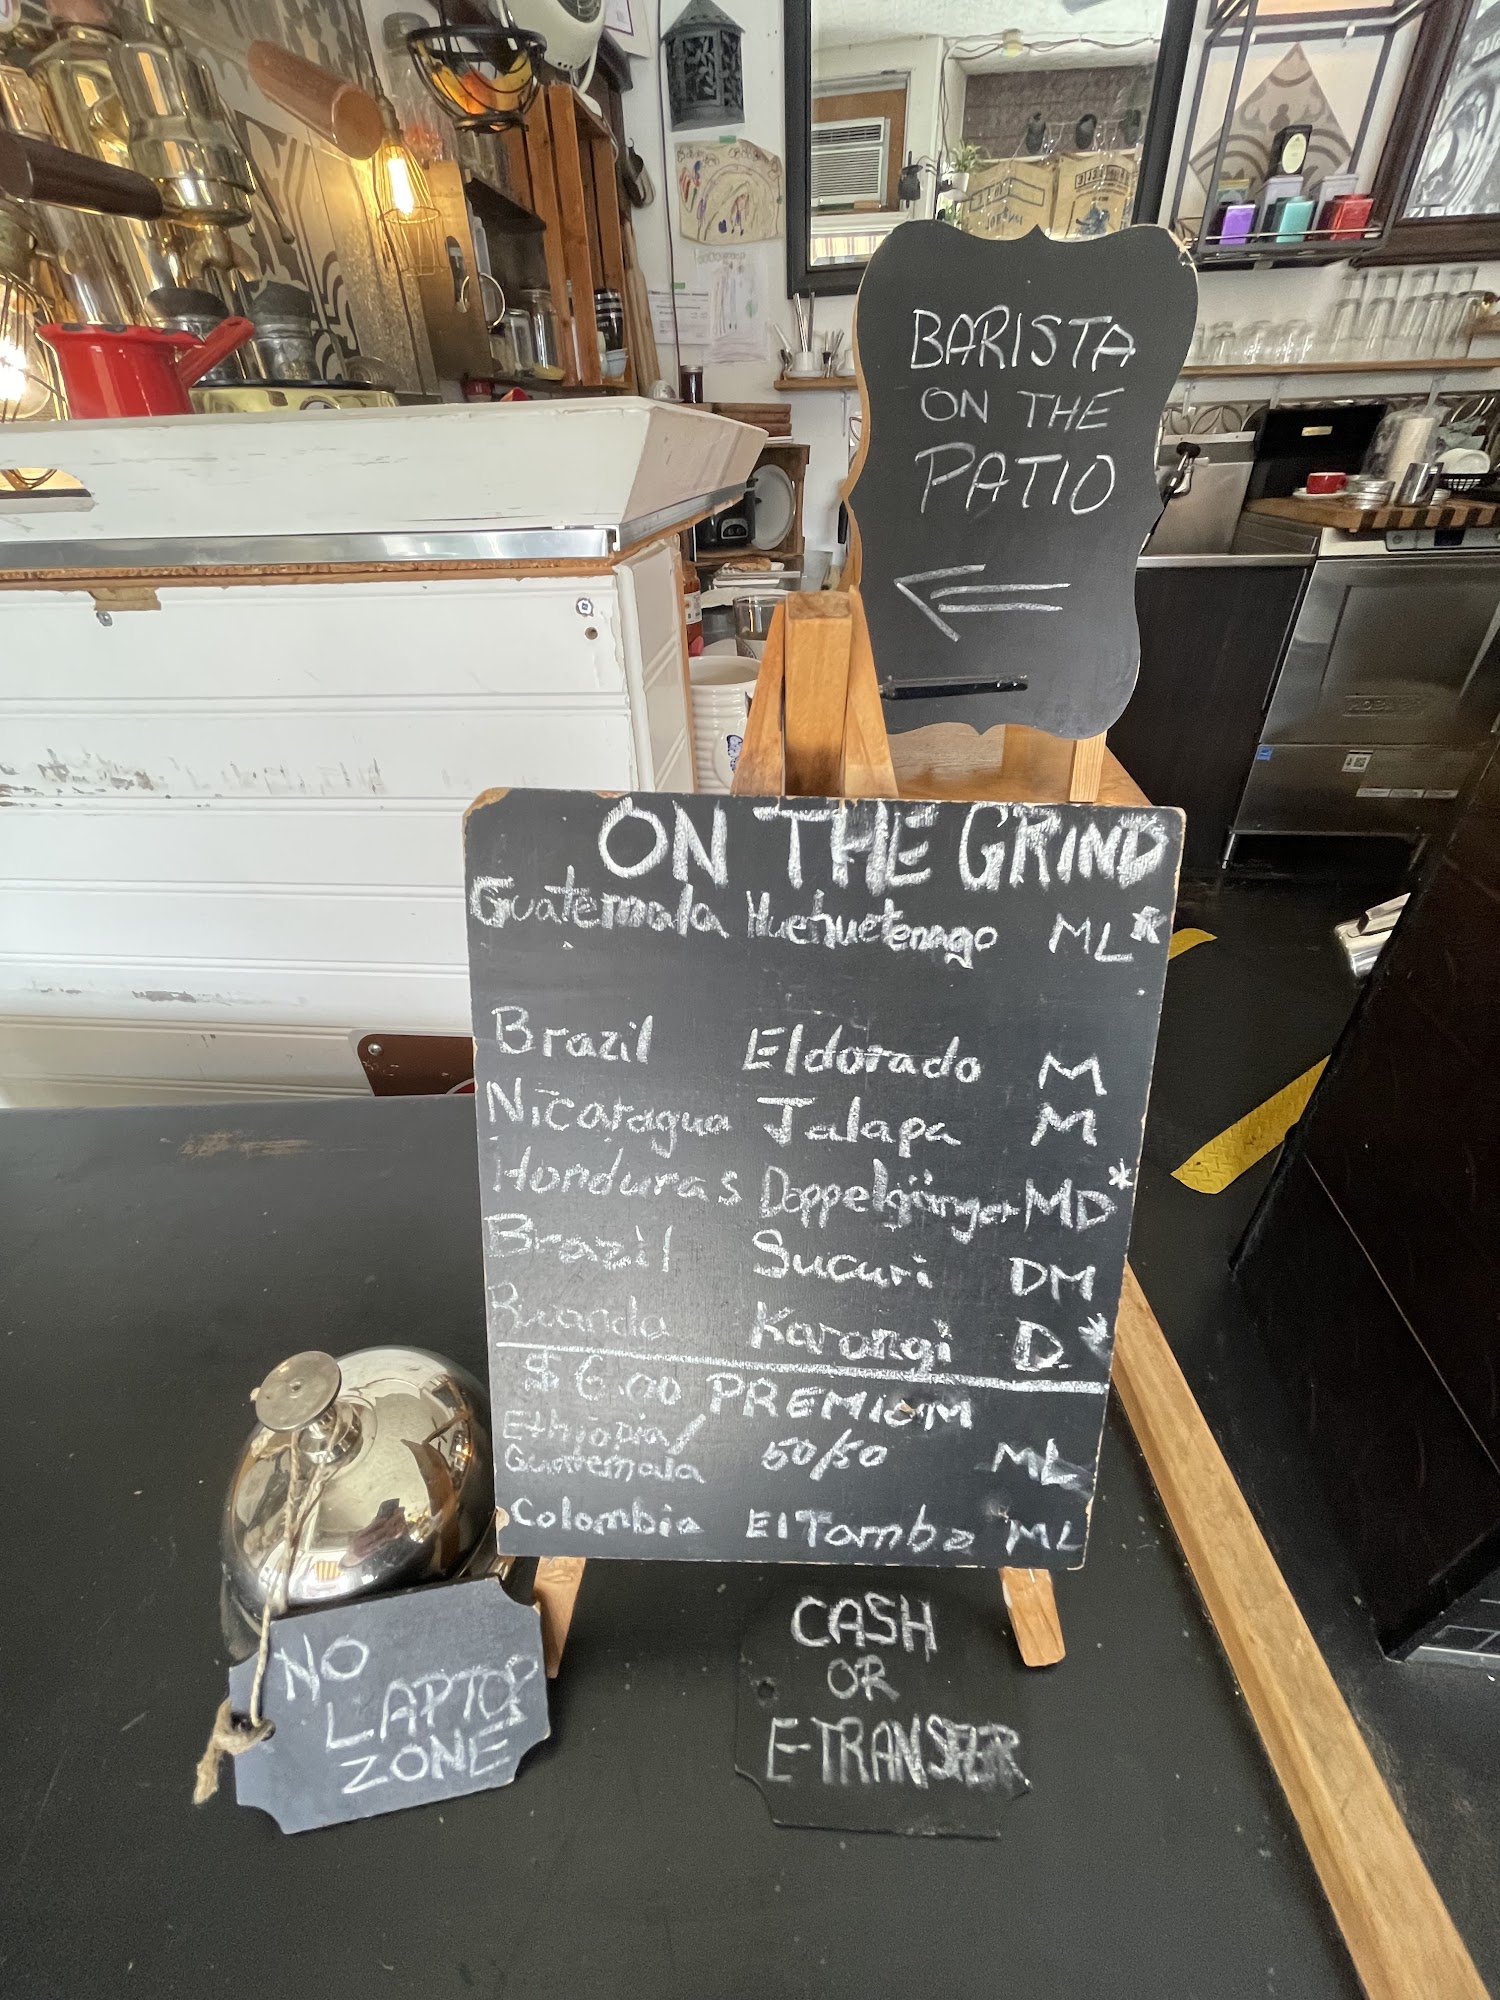 BARISTA
ON THE
PATIO
ON THE GRIND
Guatemala Huehuetenango ML*
Brazil Eldorado M
Nicaragua Jalapa M
Honduras Doppelgänger MD*
Brazil Sucuri DM
Rwanda Karongi D*
$6.00 PREMIUM
Ethiopia/
Guatemala 50/50 ML
Colombia El Tambo ML
NO
LAPTOP
ZONE
CASH
OR
E-TRANSFER